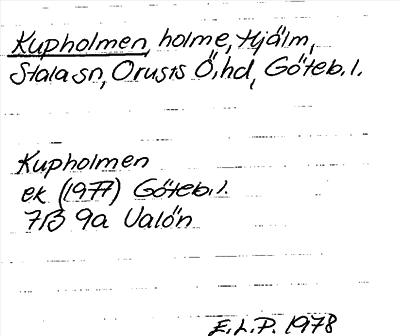 Kupholmen, holme, Hjälm,
Stala sn, Orusts Ö. hd, Göteb. l.
Kupholmen
ek (1977) Göteb. l.
7B 9a Valön
E.L.P. 1978